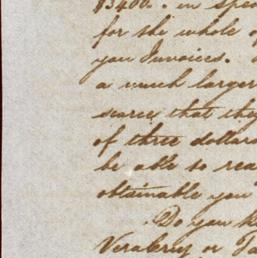 $3400. in spe
for the whole o
you Invoices.
a much larger
scarce that they
of three dollars
be able to rea
obtainable you
Do you k
Veracruz or Ta